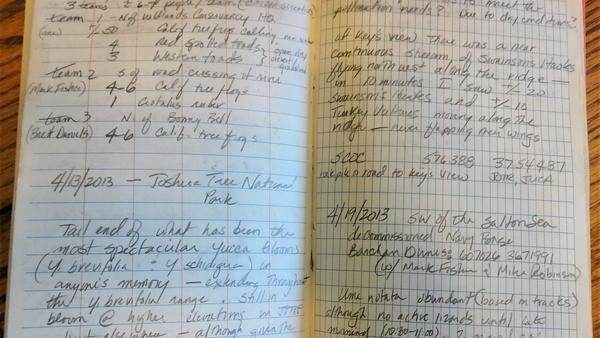 3 teams 6-7 people/team
team 1 - N of Wildlands Conservancy HQ
~50 Calif treefrogs calling
4 Red Spotted toads
3 Western toads
team 2 S of road crossing
(Mark Fisher) 4-6 Calif tree frogs
1 Crotalus ruber
team 3 N. of Bonny Bell
(Brett Daniels) 4-6 Calif. tree frogs
4/13/2013 — Joshua Tree National
Park
Tail end of what has been the
most spectacular Yucca blooms
(Y. brevifolia & Y schidigera) in
anyone's memory — extending throughout
the Y. brevifolia range. Still in
bloom @ higher elevations in JTNP
but elsewhere — although given the
pollination needs? Due to dry conditions?
At Keys View there was a near
continuous stream of Swainsons Hawks
flying northwest along the ridge
in 10 minutes I saw +/- 20
Swainson's Hawks and +/- 10
Turkey Vultures moving along the
ridge — never flapping their wings
SCDC 576388 3754487
on road to Keys View JOTR, JUCA
4/19/2013 SW of the Salton Sea
decommissioned Navy Range
Barchan Dunes: 607026 3671991
(w/ Mark Fisher & Mike Robinson)
Uma notata abundant (based on tracks)
although no active lizards until late
morning (10:30-11:00).